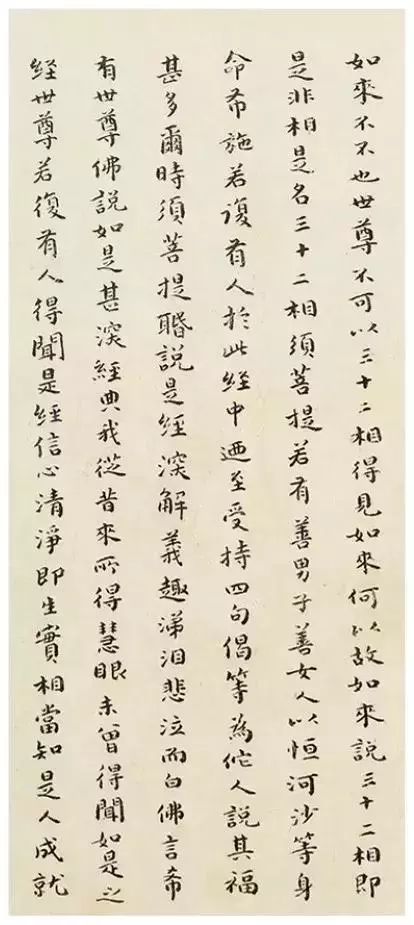 如來不不也世尊不可以三十二相得見如來何以故如來說三十二相即
是非相是名三十二相須菩提若有善男子善女人以恒河沙等身
命布施若復有人於此經中迺至受持四句偈等為佗人說其福
甚多爾時須菩提聞說是經深解義趣涕泪悲泣而白佛言希
有世尊佛說如是甚深經典我從昔來所得慧眼未曾得聞如是之
經世尊若復有人得聞是經信心清淨即生實相當知是人成就